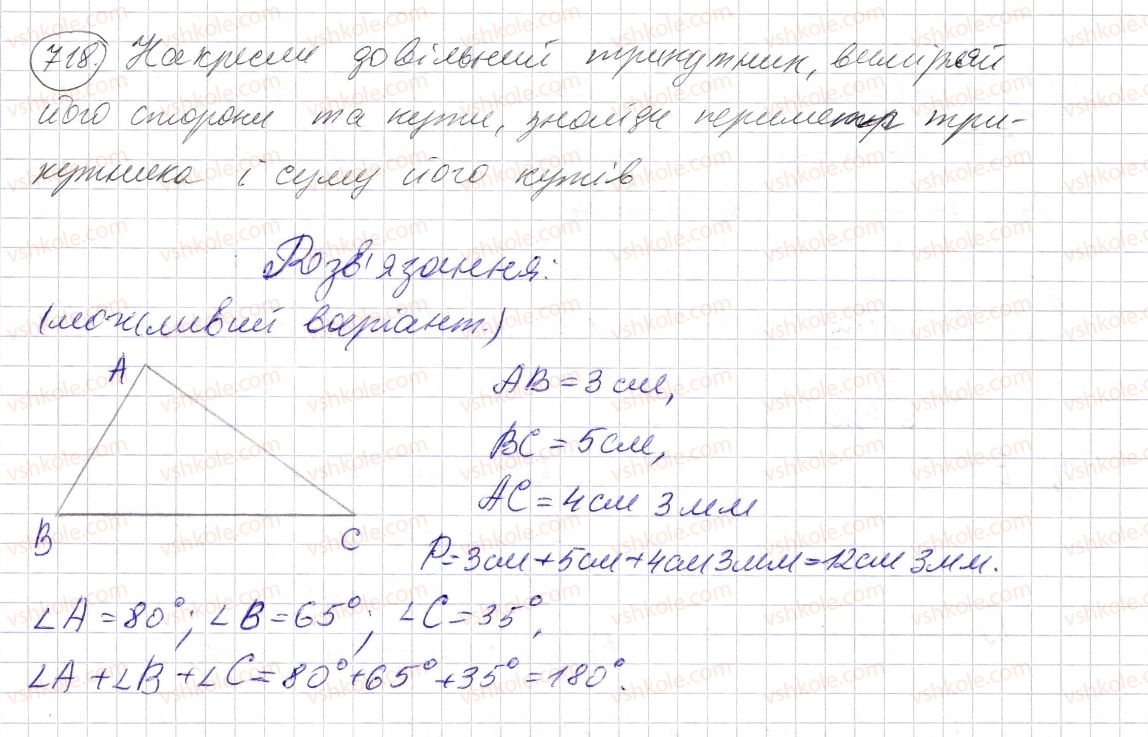 718. Накресли довільний трикутник, виміряй
його сторони та кути, знайди периметр три-
кутника і суму його кутів
Розв'язання:
(можливий варіант.)
A
B
C
AB = 3 см,
BC = 5 см,
AC = 4 см 3 мм
P = 3 см + 5 см + 4 см 3 мм = 12 см 3 мм.
∠A = 80°; ∠B = 65°; ∠C = 35°,
∠A + ∠B + ∠C = 80° + 65° + 35° = 180°.
vshkole.com